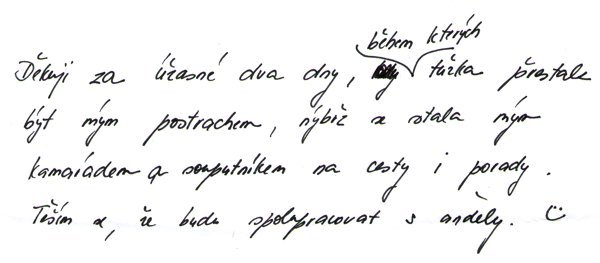 Děkuji za úžasné dva dny, během kterých tužka přestala
být mým postrachem, nýbrž se stala mým
kamarádem a souputníkem na cesty i porady.
Těším se, že budu spolupracovat s anděly. ☺